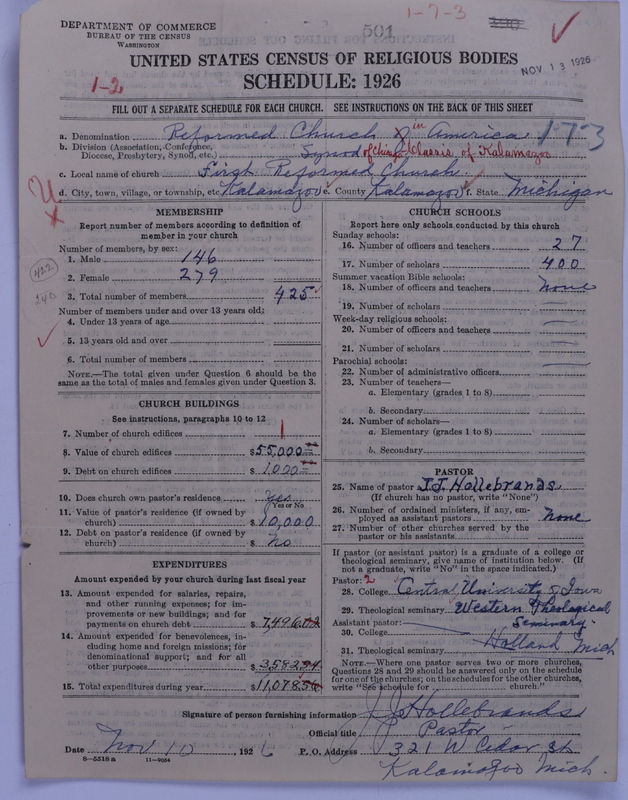 DEPARTMENT OF COMMERCE
BUREAU OF THE CENSUS
WASHINGTON
501
1-7-3
NOV 13 1926
UNITED STATES CENSUS OF RELIGIOUS BODIES
1-2
SCHEDULE: 1926
FILL OUT A SEPARATE SCHEDULE FOR EACH CHURCH. SEE INSTRUCTIONS ON THE BACK OF THIS SHEET
a. Denomination Reformed Church in America 1-7-3
b. Division (Association, Conference, Diocese, Presbytery, Synod, etc.) Synod of Chicago, Classis of Kalamazoo
c. Local name of church First Reformed Church
d. City, town, village, or township, etc. Kalamazoo e. County Kalamazoo f. State Michigan
MEMBERSHIP
Report number of members according to definition of
member in your church
Number of members, by sex:
1. Male 146
2. Female 279
3. Total number of members 425
422
Number of members under and over 13 years old:
4. Under 13 years of age
5. 13 years old and over
6. Total number of members
NOTE.—The total given under Question 6 should be
same as the total of males and females given under Question 3.
CHURCH BUILDINGS
See instructions, paragraphs 10 to 12
7. Number of church edifices 1
8. Value of church edifices $55,000
9. Debt on church edifices $1000
10. Does church own pastor's residence Yes
Yes or No
11. Value of pastor's residence (if owned by
church) $10,000
12. Debt on pastor's residence (if owned by
church) $ no
EXPENDITURES
Amount expended by your church during last fiscal year
13. Amount expended for salaries, repairs,
and other running expenses; for im-
provements or new buildings; and for
payments on church debt $7,496.02
14. Amount expended for benevolences, in-
cluding home and foreign missions; for
denominational support; and for all
other purposes $3,582.54
15. Total expenditures during year $11,078.56
CHURCH SCHOOLS
Report here only schools conducted by this church
Sunday schools:
16. Number of officers and teachers 27
17. Number of scholars 400
Summer vacation Bible schools:
18. Number of officers and teachers None
19. Number of scholars
Week-day religious schools:
20. Number of officers and teachers
21. Number of scholars
Parochial schools:
22. Number of administrative officers
23. Number of teachers—
a. Elementary (grades 1 to 8)
b. Secondary
24. Number of scholars—
a. Elementary (grades 1 to 8)
b. Secondary
PASTOR
25. Name of pastor J.J. Hollebrands
(If church has no pastor, write "None")
26. Number of ordained ministers, if any, em-
ployed as assistant pastors None
27. Number of other churches served by the
pastor or his assistants
If pastor (or assistant pastor) is a graduate of a college or
theological seminary, give name of institution below. (If
not a graduate, write "No" in the space indicated.)
Pastor: 2
28. College Central University of Iowa
29. Theological seminary Western Theological
Assistant pastor: Seminary.
30. College Holland Mich
31. Theological seminary
NOTE.—Where one pastor serves two or more churches,
Questions 28 and 29 should be answered only on the schedule
for one of the churches; on the schedules for the other churches,
write "See schedule for church."
Signature of person furnishing information J.J. Hollebrands
Official title Pastor
Date Nov 10, 1926 P. O. Address 321 W Cedar St
8—5518a 11—9054
Kalamazoo Mich.